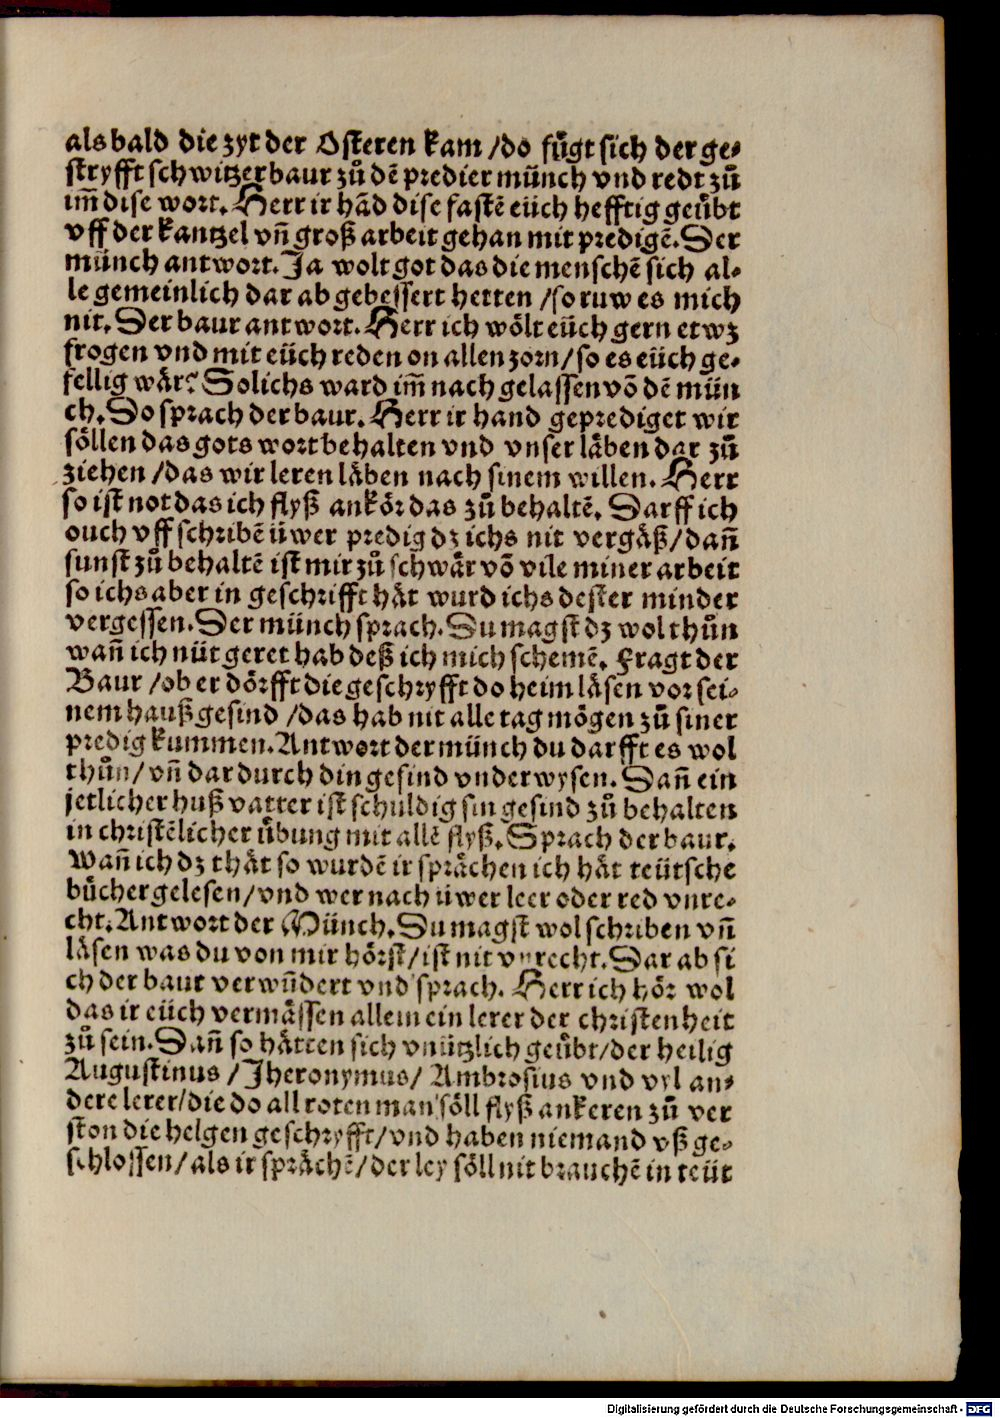 als bald die zyt der Osteren kam /do fuͤgt sich der ge⸗
stryfft schwitzer baur zuͦ dē predier münch vnd redt zuͦ
im̄ dise wort. Herr ir hād dise fastē eüch hefftig geuͤbt
vff der kantzel vn̄ groß arbeit gehan mit predigē. Der
münch antwort. Ja wolt got das die menschē sich al⸗
le gemeinlich dar ab gebessert hetten /so ruw es mich
nit. Der baur antwort. Herr ich woͤlt eüch gern etwz
frogen vnd mit eüch reden on allen zorn/so es eüch ge⸗
fellig waͤr? Solichs ward im̄ nach gelassen vō dē mün
ch. Do sprach der baur. Herr ir hand geprediget wir
soͤllen das gots wort behalten vnd vnser laͤben dar zuͦ
ziehen /das wir leren laͤben nach sinem willen. Herr
so ist not das ich flyß ankoͤr das zuͦ behaltē. Darff ich
ouch vff schribē üwer predig dz ichs nit vergaͤß/dan̄
sunst zuͦ behaltē ist mir zuͦ schwaͤr vō vile miner arbeit
so ichs aber in geschrifft haͤt wurd ichs dester minder
vergessen. Der münch sprach. Du magst dz wol thuͦn
wan̄ ich nüt geret hab deß ich mich schemē. Fragt der
Baur /ob er doͤrfft die geschryfft do heim laͤsen vor sei⸗
nem hauß gesind /das hab nit alle tag moͤgen zuͦ siner
predig kummen. Antwort der münch du darfft es wol
thuͦn/ vn̄ dar durch din gesind vnderwysen. Dan̄ ein
jetlicher huß vatter ist schuldig sin gesind zuͦ behalten
in christēlicher uͤbung mit allē flyß. Sprach der baur.
Wan̄ ich dz thaͤt so wurdē ir spraͤchen ich haͤt teütsche
buͤcher gelesen/vnd wer nach üwer leer oder red vnre⸗
cht. Antwort der Münch. Du magst wol schriben vn̄
laͤsen was du von mir hoͤrst/ist nit vnrecht. Dar ab si
ch der baur verwun̄dert vnd sprach. Herr ich hoͤr wol
das ir eüch vermaͤssen allein ein lerer der christenheit
zuͦ sein. Dan̄ so haͤtten sich vnützlich geuͤbt/der heilig
Augustinus /Jheronymus/ Ambrosius vnd vyl an⸗
dere lerer/die do all roten man soͤll flyß ankeren zuͦ ver
ston die helgen geschryfft/vnd haben niemand vß ge⸗
schlossen/als ir spraͤchē/der ley soͤll nit brauchē in teüt
Digitalisierung gefördert durch die Deutsche Forschungsgemeinschaft - DFG